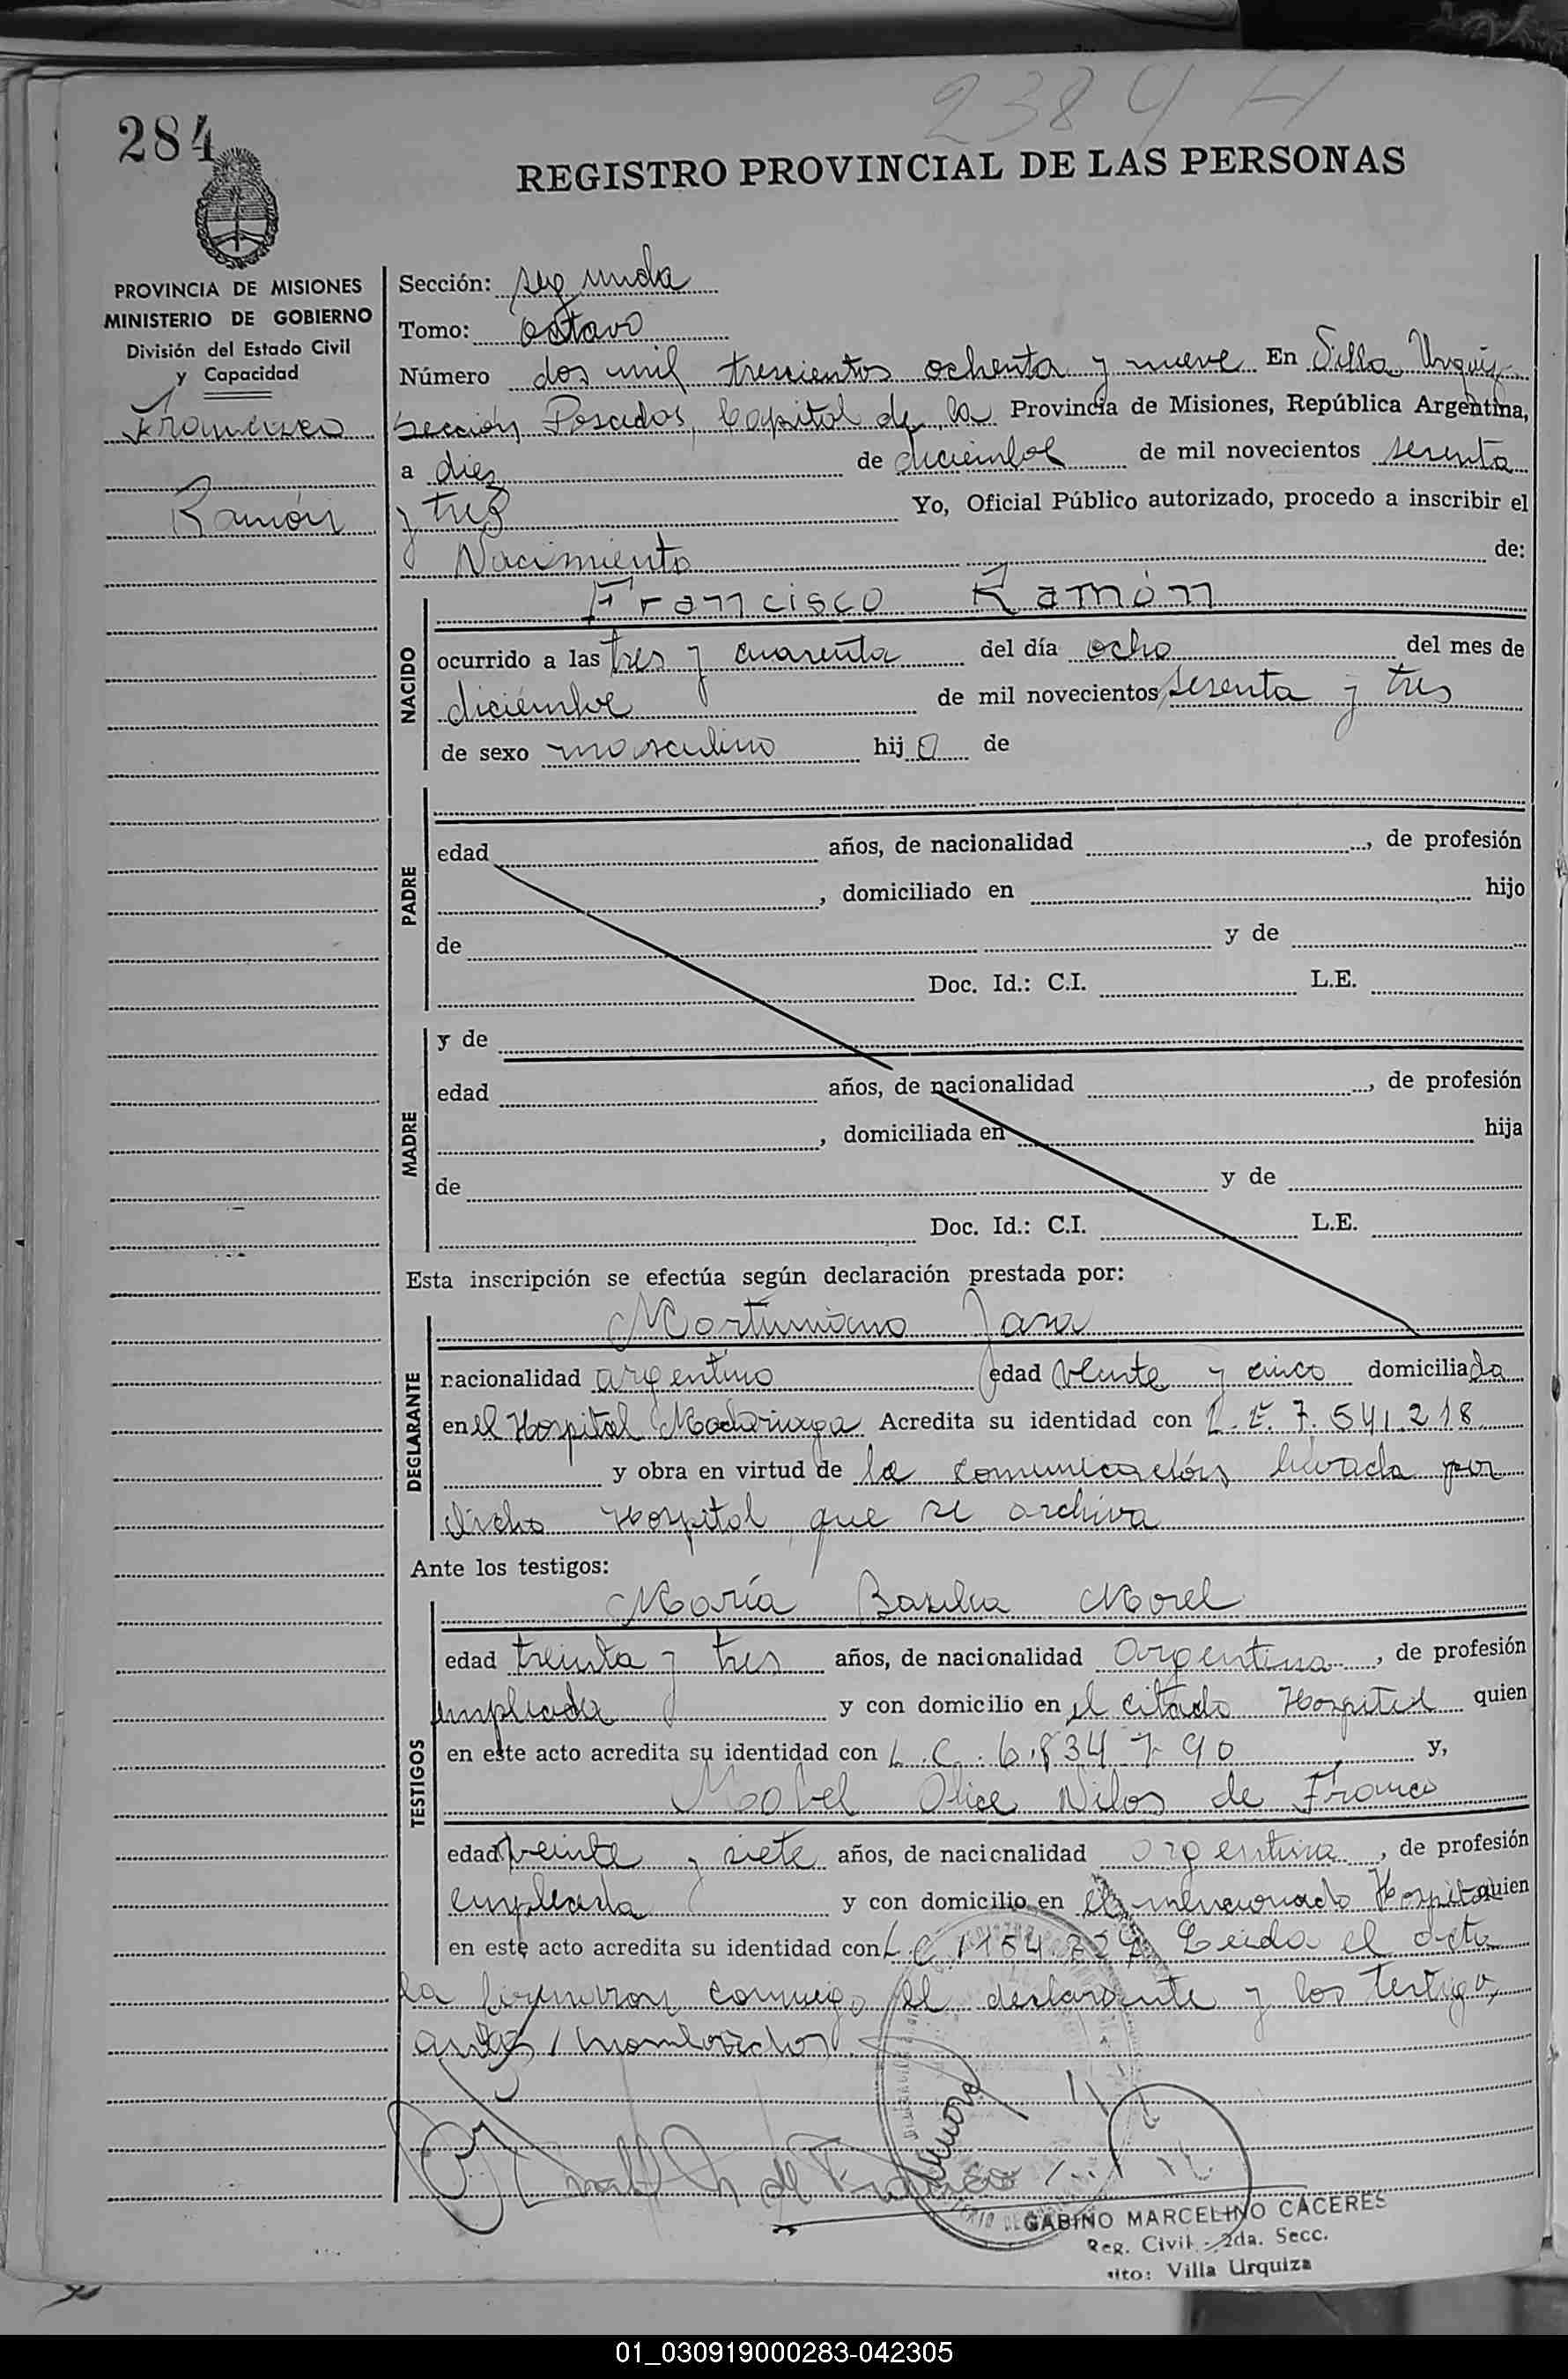 2389 H
284
REGISTRO PROVINCIAL DE LAS PERSONAS
PROVINCIA DE MISIONES
MINISTERIO DE GOBIERNO
División del Estado Civil
y Capacidad
Francisco
Ramón
Sección: segunda
Tomo: octavo
Número dos mil trescientos ochenta y nueve En Villa Urquiza
sección Posadas, Capital de la Provincia de Misiones, República Argentina,
a diez de diciembre de mil novecientos sesenta
y tres Yo, Oficial Público autorizado, procedo a inscribir el
Nacimiento de:
NACIDO
Francisco Ramón
ocurrido a las tres y cuarenta del día ocho del mes de
diciembre de mil novecientos sesenta y tres
de sexo masculino hijo de
PADRE
edad años, de nacionalidad , de profesión
, domiciliado en hijo
de y de
Doc. Id.: C.I. L.E.
MADRE
y de
edad años, de nacionalidad , de profesión
, domiciliada en hija
de y de
Doc. Id.: C.I. L.E.
Esta inscripción se efectúa según declaración prestada por:
DECLARANTE
Jara
nacionalidad argentino edad veinte y cinco domiciliado
en el Hospital Madariaga Acredita su identidad con L.E. 7.541.218
y obra en virtud de la comunicación librada por
dicho Hospital que se archiva
Ante los testigos:
TESTIGOS
María Basilia Morel
edad treinta y tres años, de nacionalidad argentina, de profesión
empleada y con domicilio en el citado Hospital quien
en este acto acredita su identidad con L.C. 6.834.790 y,
Mabel Alice de Franco
edad veinte y siete años, de nacionalidad argentina, de profesión
empleada y con domicilio en el mencionado Hospital quien
en este acto acredita su identidad con L.C. Leida el acta
la firmaron conmigo, el declarante y los testigos
antes nombrados.
GABINO MARCELINO CACERES
Reg. Civil - 2da. Secc.
Villa Urquiza
01_030919000283-042305